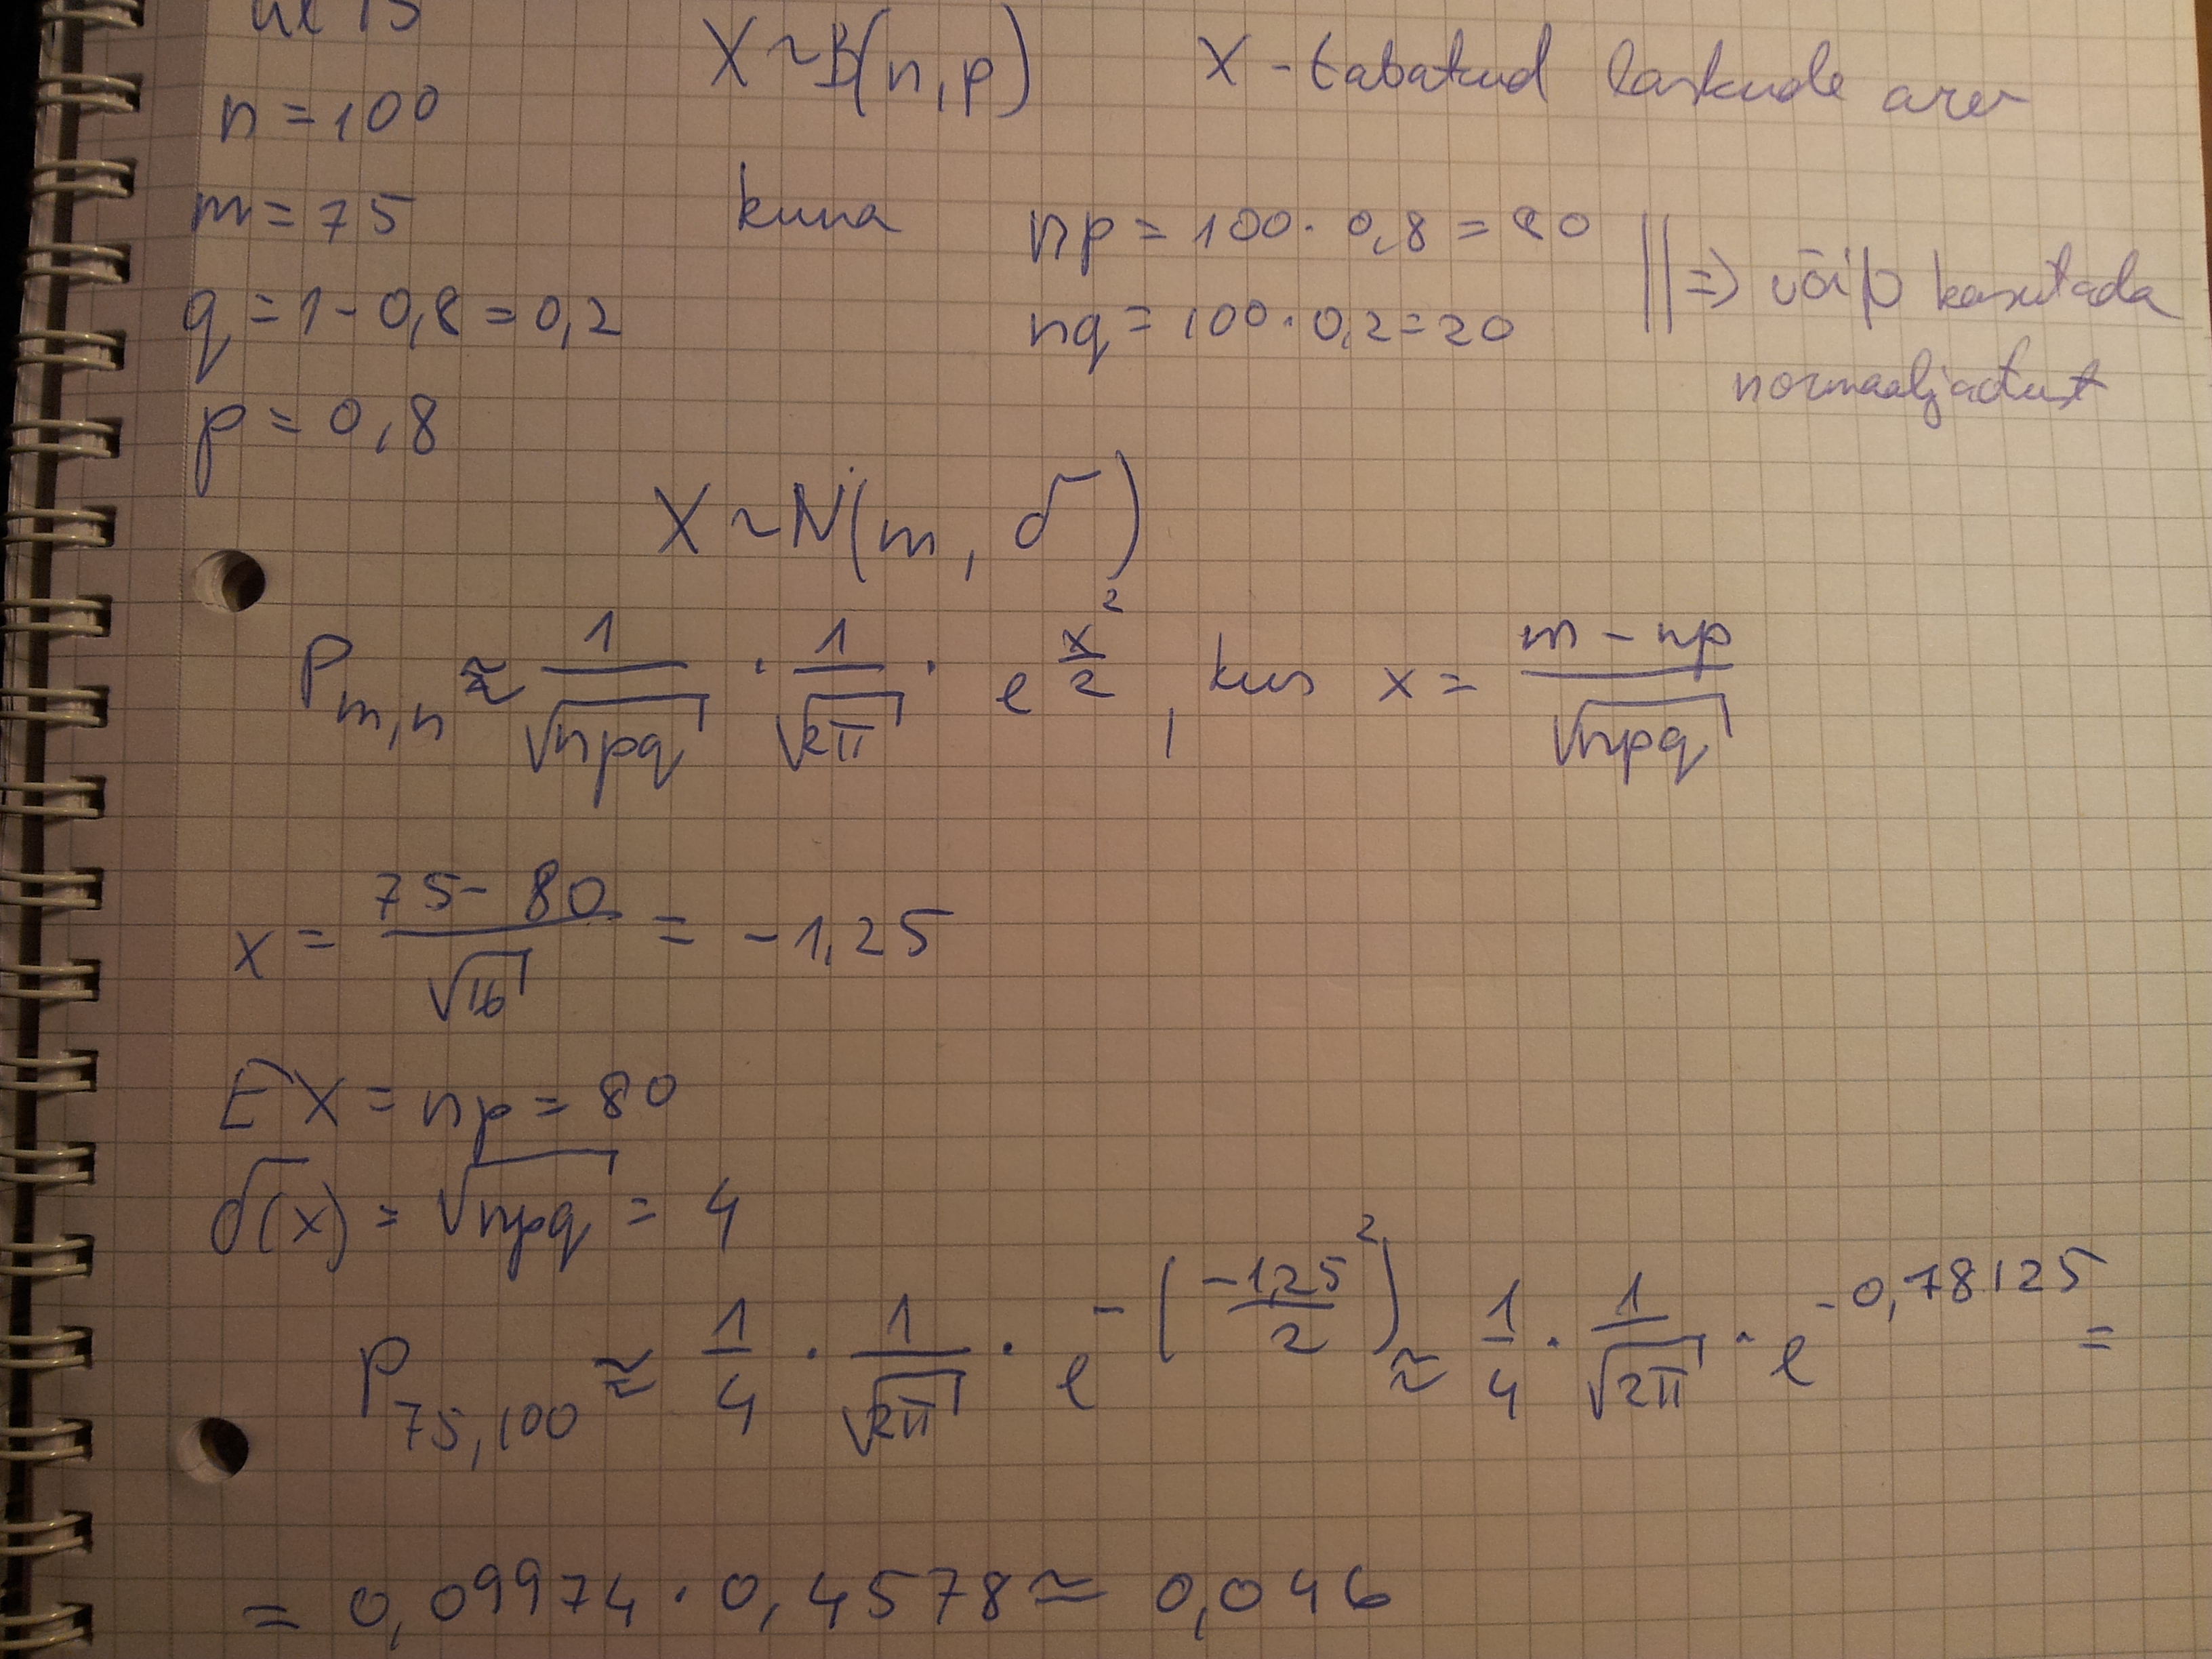 ül 15
X~B(n,p) X - tabatud laskude arv
n = 100
m = 75
kuna np = 100 · 0,8 = 80
q = 1 - 0,8 = 0,2
nq = 100 · 0,2 = 20 || => võib kasutada
normaaljaotust
p = 0,8
X ~ N(m, σ)
P_{m,n} ≈ \frac{1}{\sqrt{npq}} · \frac{1}{\sqrt{2π}} · e^{\frac{x^2}{2}}, kus x = \frac{m - np}{\sqrt{npq}}
x = \frac{75 - 80}{\sqrt{16}} = -1,25
EX = np = 80
σ(x) = \sqrt{npq} = 4
P_{75,100} ≈ \frac{1}{4} · \frac{1}{\sqrt{2π}} · e^{-(\frac{-1,25^2}{2})} ≈ \frac{1}{4} · \frac{1}{\sqrt{2π}} · e^{-0,78125} =
= 0,09974 · 0,4578 ≈ 0,046